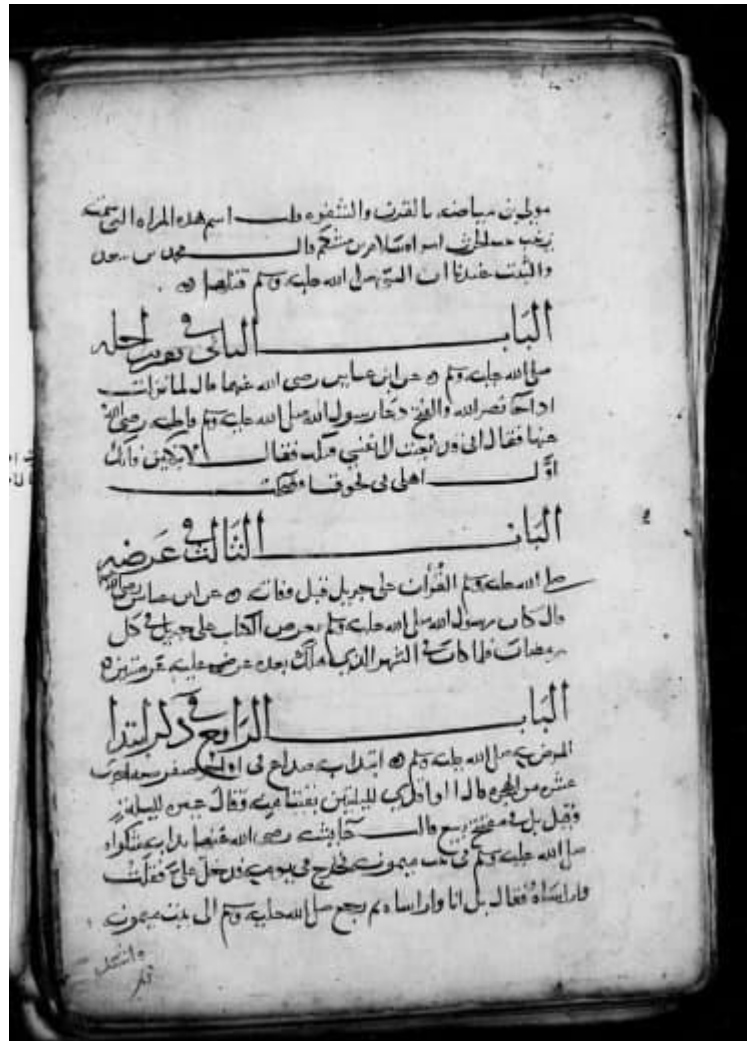 بالقرب اسم هذه المراه التي سمت
زينب قال محمد بن
والثبت عندنا ان النبي صلى الله عليه وسلم قتلها
الباب الثاني في اجله
صلى الله عليه وسلم عن ابن عباس رضى الله عنهما قال لما نزلت
اذا جا نصر الله والفتح دعا رسول الله صلى الله عليه وسلم فاطمه رضى الله
عنها فقال انى فبكت فقال لا تبكين فانك
اول اهلى بى لحوقا فضحكت
الباب الثالث في عرضه
صلى الله عليه وسلم القرآن على جبريل قبل وفاته عن ابن عباس رضى الله
قال كان رسول الله صلى الله عليه وسلم يعرض الكتاب على جبريل في كل
رمضان فلما كان في الشهر الذي هلك بعده عرضه عليه عرضتين
الباب الرابع في ذكر ابتدا
المرض به صلى الله عليه وسلم ابتدا به صداع في صفر
عشره من الهجره لليلتين بقيتا منه وقال
وقيل بل في مفتتح ربيع قالت عايشه رضى الله عنها
صلى الله عليه وسلم في بيت ميمونه فخرج فدخل على فقلت
واراساه فقال بل انا واراساه ثم رجع صلى الله عليه وسلم الى بيت ميمونه